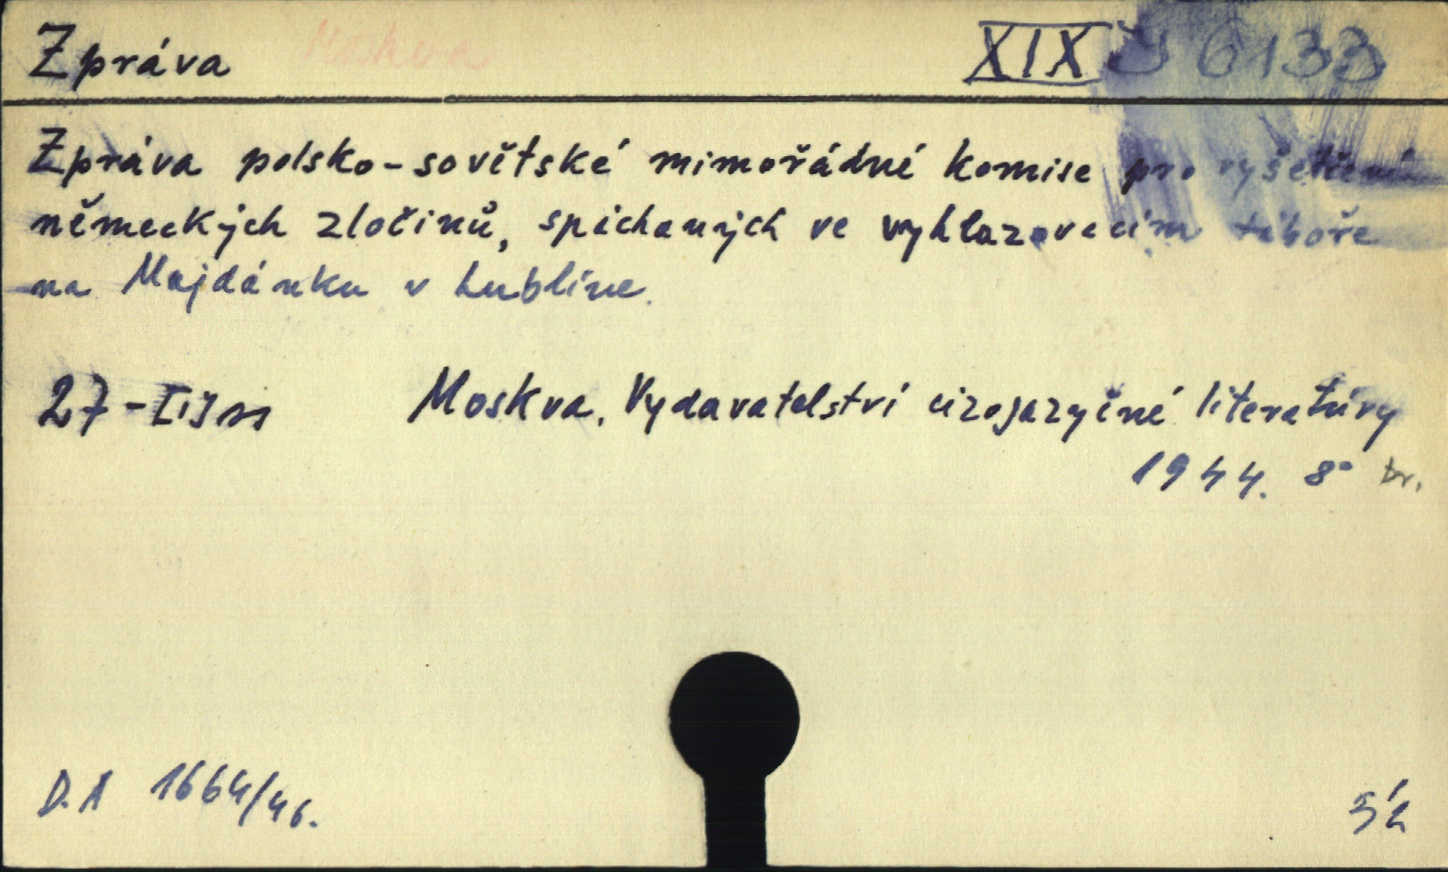 Zpráva Moskva XIX J 6133
Zpráva polsko-sovětské mimořádné komise pro vyšetření
německých zločinů, spáchaných ve vyhlazovacím táboře
na Majdánku v Lublíne.
27-[1]m Moskva. Vydavatelství cizojazyčné literatúry
1944. 8° br.
D.A 1664/46.